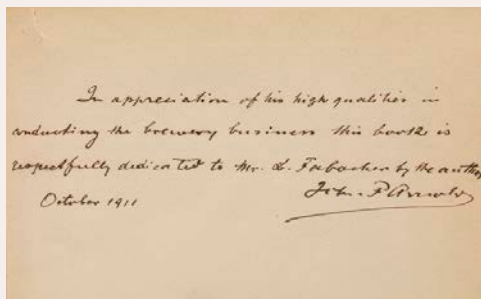 In appreciation of his high qualities in
conducting the brewery business this book is
respectfully dedicated to Mr. L. Fabacher by the author
October 1911
John P Arnold